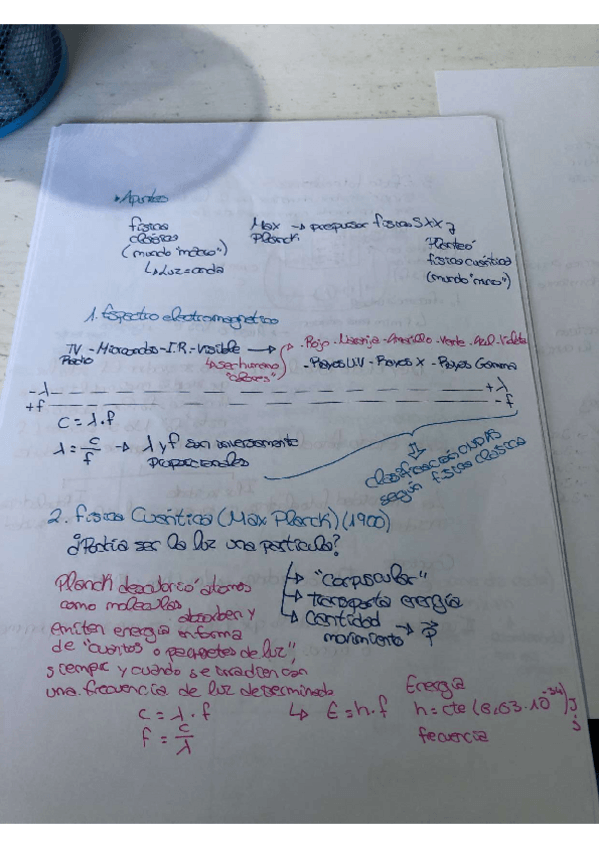 • Apuntes
física clásica (mundo "macro")
↳ Luz = onda
Max Planck → propulsor física S.XX y
Planteó física cuántica (mundo "micro")
1. Espectro electromagnético
TV - Microondas - I.R. - Visible → · Rojo · Naranja · Amarillo · Verde · Azul · Violeta
Radio
↳ ser humano "colores"
- Rayos UV - Rayos X - Rayos Gamma
-λ +λ
+f -f
c = λ · f
λ = c/f → λ y f son inversamente proporcionales
clasificación ONDAS según física clásica
2. física Cuántica (Max Planck) (1900)
¿Podía ser la luz una partícula?
→ "corpuscular"
→ transporta energía
→ Cantidad movimiento → p⃗
Planck descubrió átomos
como moléculas absorben y
emiten energía en forma
de "cuantos o paquetes de luz",
siempre y cuando se irradien con
una frecuencia de luz determinada
c = λ · f
f = c/λ
↳ E = h · f
Energía
h = cte (6,63 · 10⁻³⁴) J
fecuencia